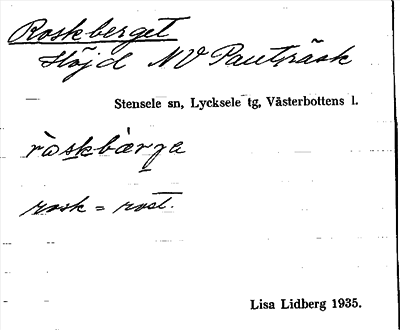 Roskberget
Höjd NV Pauträsk
Stensele sn, Lycksele tg, Västerbottens l.
ròskbær̀ga
rosk = rost.
Lisa Lidberg 1935.